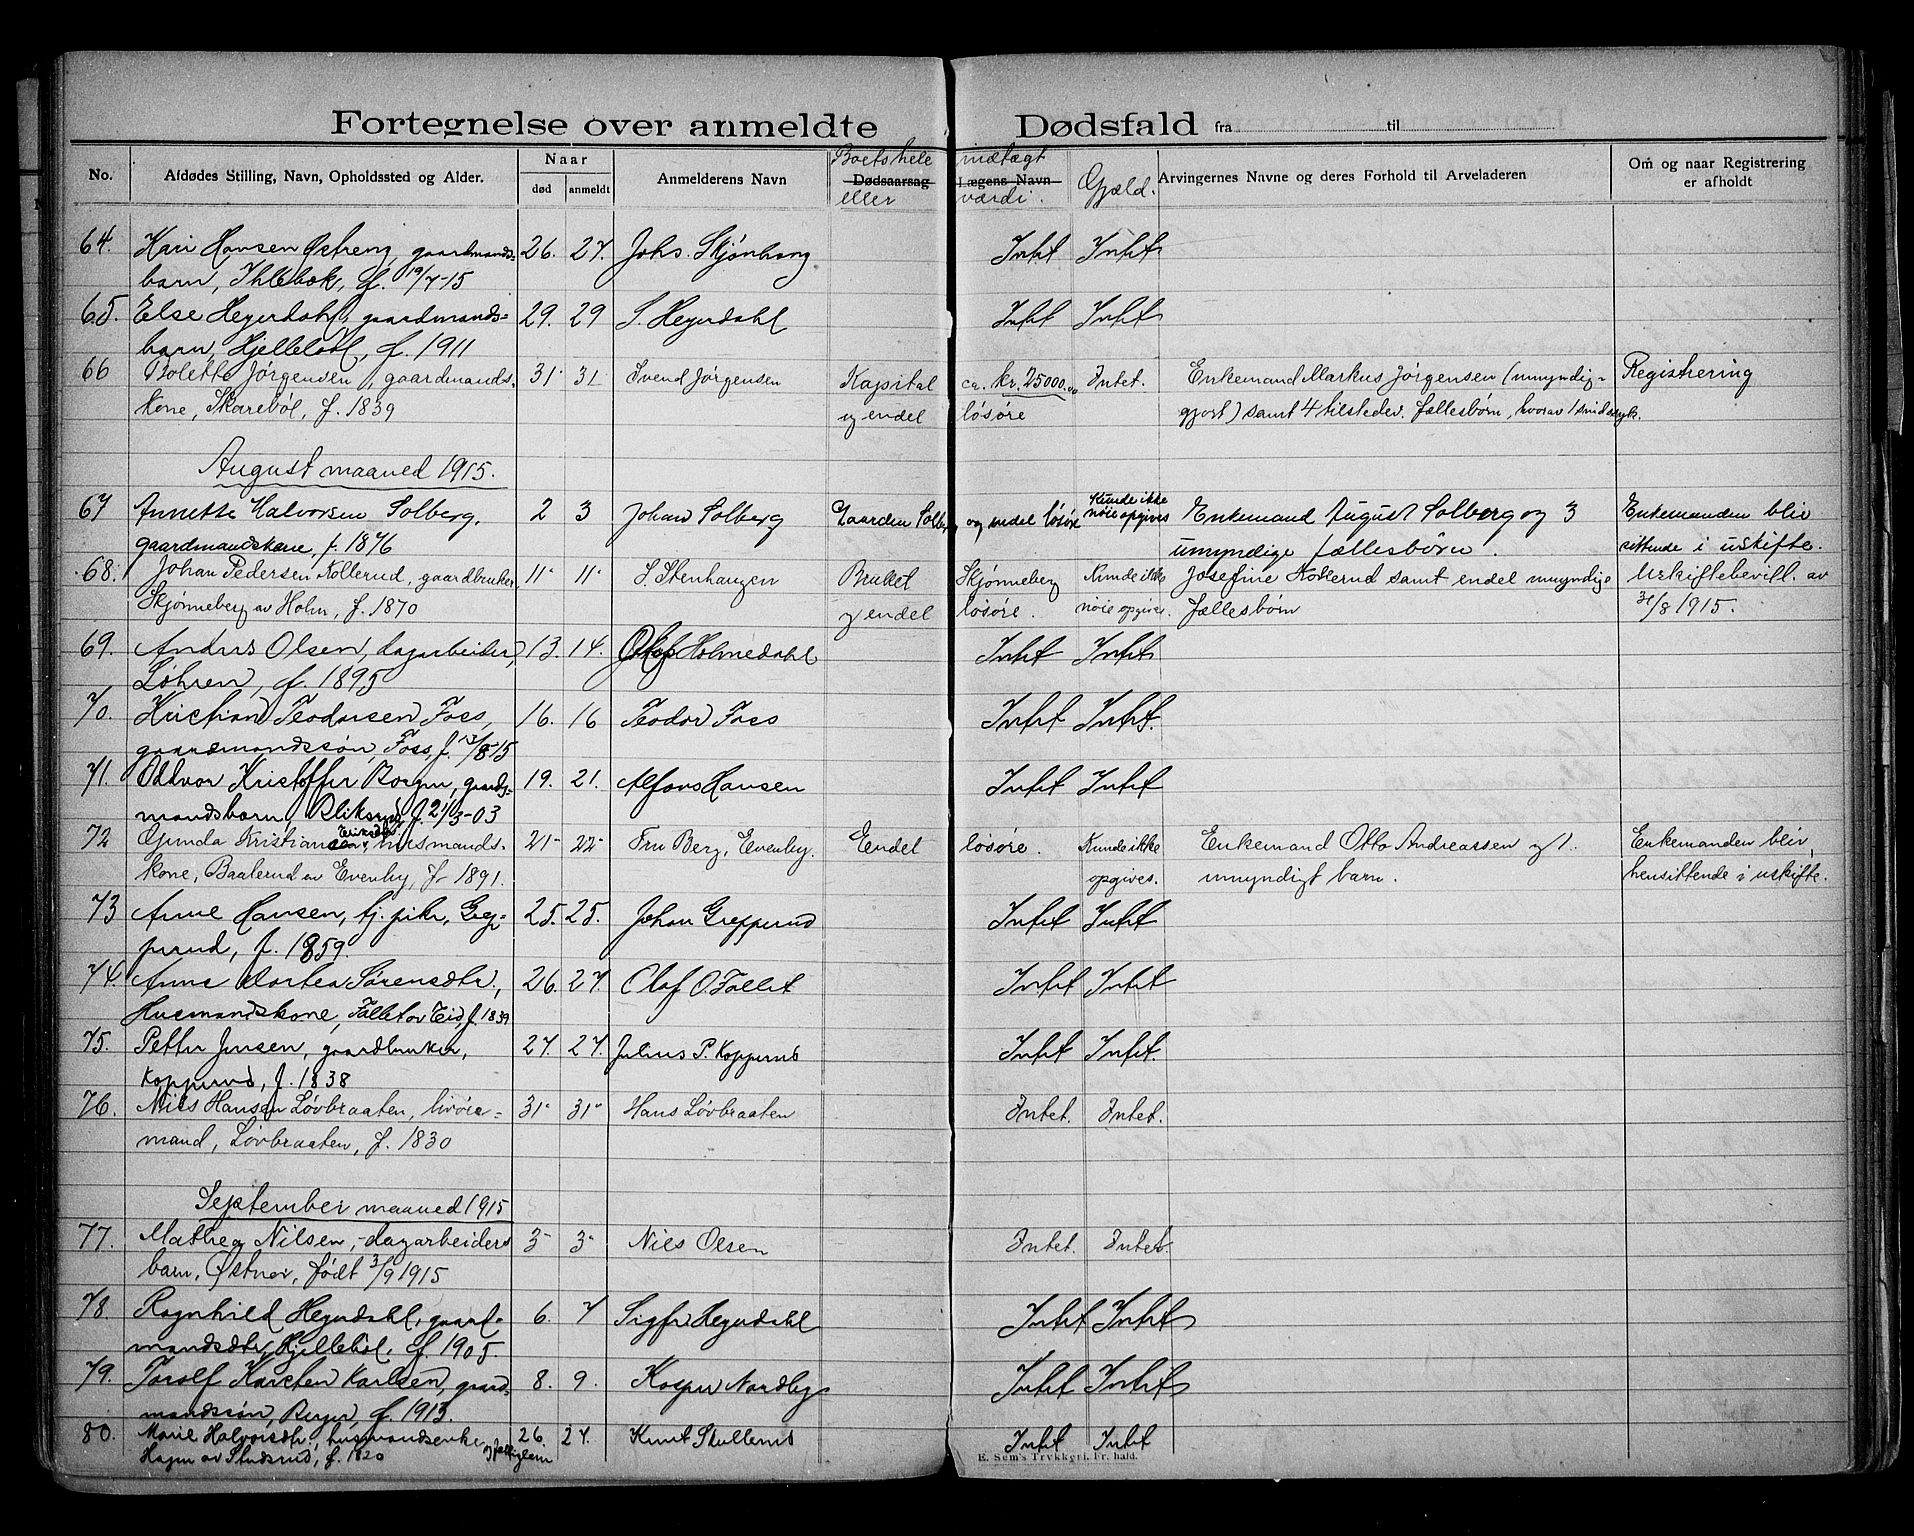 Fortegnelse over anmeldte Dødsfald fra til
No. Afdødes Stilling, Navn, Opholdssted og Alder. Naar død anmeldt Anmelderens Navn Dødsaarsag Lægens Navn Boets hele indtægt eller værdi. Gjæld. Arvingernes Navne og deres Forhold til Arveladeren Om og naar Registrering er afholdt
64. Kari Hansen Østreng, gaardmands- 26. 27. Johs. Skjønhaug Intet Intet
barn, Ihlebøk, f. 19/7-15
65. Else Heyerdahl, gaardmands- 29. 29 S. Heyerdahl Intet Intet
barn, Hjellebøl, f. 1911
66 Bolette Jörgensen, gaardmands- 31 31 Svend Jörgensen Kapital ca. kr. 25000.00 Intet. Enkemand Markus Jörgensen (umyndig- Registrering
kone, Skarebøl, f. 1839 og endel løsøre gjort) samt 4 tilstedev. fællesbørn, hvorav 1 sindssyk.
August maaned 1915.
67 Annette Halvorsen Solberg, 2 3 Johan Solberg Gaarden Solberg og endel løsøre Kunde ikke nöie opgives Enkemand August Solberg og 3 Enkemanden bliv
gaardmandskone, f. 1876 umyndige fællesbørn. sittende i uskifte.
68. Johan Pedersen Kollerud, gaardbruker 11 11 S. Stenhaugen Bruket Skjønneberg Kunde ikke Josefine Kollerud samt endel umyndige Uskiftebevill. av
Skjønneberg av Holm, f. 1870 og endel løsøre. nöie opgives fællesbörn 31/8 1915.
69. Anders Olsen, dagarbeider, 13. 14. Olaf Holmedahl Intet Intet
Løhren, f. 1895
70. Kristian Teodorsen Foss, 16. 16 Teodor Foss Intet Intet.
gaardmandssøn, Foss, f. 13/8-15
71. Oddvor Kristoffer Borgen, gaard- 19. 21. Alfons Hansen Intet Intet
mandsbarn, Bliksrud f. 21/3-03
72 Gunda Kristiansen husmands- 21 22 Fru Berg, Evenby. Endel løsøre. Kunde ikke Enkemand Otto Andreassen og 1. Enkemanden bliv
kone, Baalerud av Evenby, f. 1891. opgives. umyndigt barn. hensittende i uskifte.
73 Anne Hansen, tj. pike, Grep- 25. 25. Johan Grepperud Intet Intet
perud, f. 1859.
74. Anne Dortea Sørensdtr., 26. 27. Olaf O. Fallet Intet Intet
Husmandskone, Fallet av Eid, f. 1839
75. Petter Jensen, gaardbruker, 27. 27. Julius P. Kopperud Intet Intet.
Kopperud, f. 1838
76. Nils Hansen Løvbraaten, livöre- 31 31 Hans Løvbraaten Intet. Intet.
mand, Løvbraaten, f. 1830
September maaned 1915
77. Mathea Nilsen, dagarbeiders 3 3 Nils Olsen Intet. Intet.
barn, Østner, født 3/9 1915
78. Ragnhild Heyerdahl, gaard- 6. 7 Sigfr. Heyerdahl Intet Intet
mandsdtr, Hjellebøl, f. 1905.
79. Torolf Karsten Karlsen, gaard- 8. 9. Kasper Nordby Intet Intet
mandssøn, Berger, f. 1913.
80. Marie Halvorsdtr. husmandsenke 26 27. Knut Skullerud Intet Intet
Hagen av Studsrud, f. 1820
E. Sem's Trykkeri. Fr. hald.